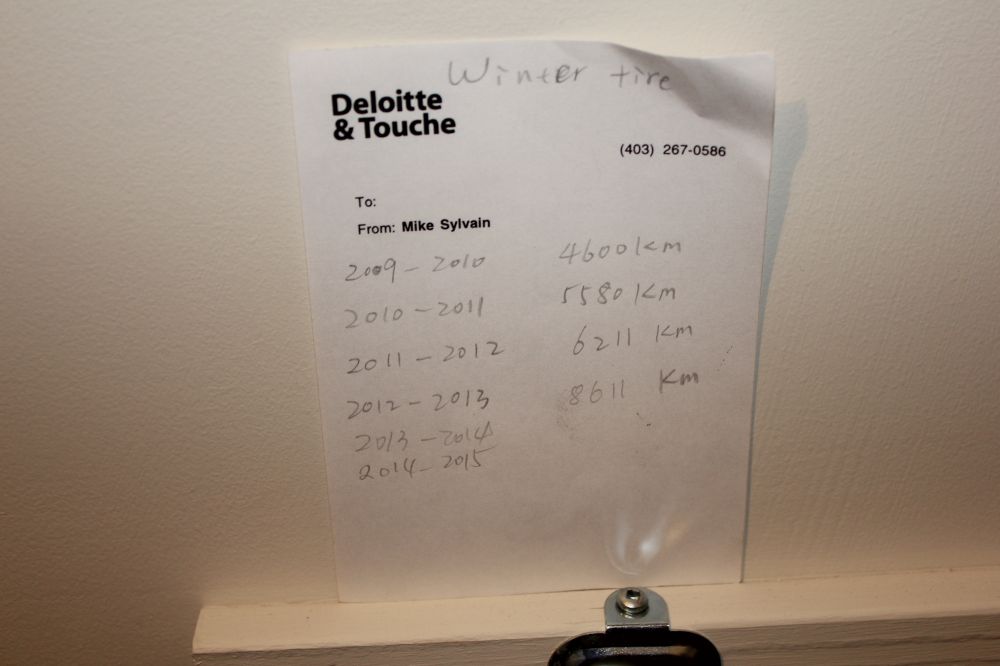 Winter tire
Deloitte
& Touche
(403) 267-0586
To:
From: Mike Sylvain
2009 - 2010 4600 km
2010 - 2011 5580 km
2011 - 2012 6211 km
2012 - 2013 8611 km
2013 - 2014
2014 - 2015